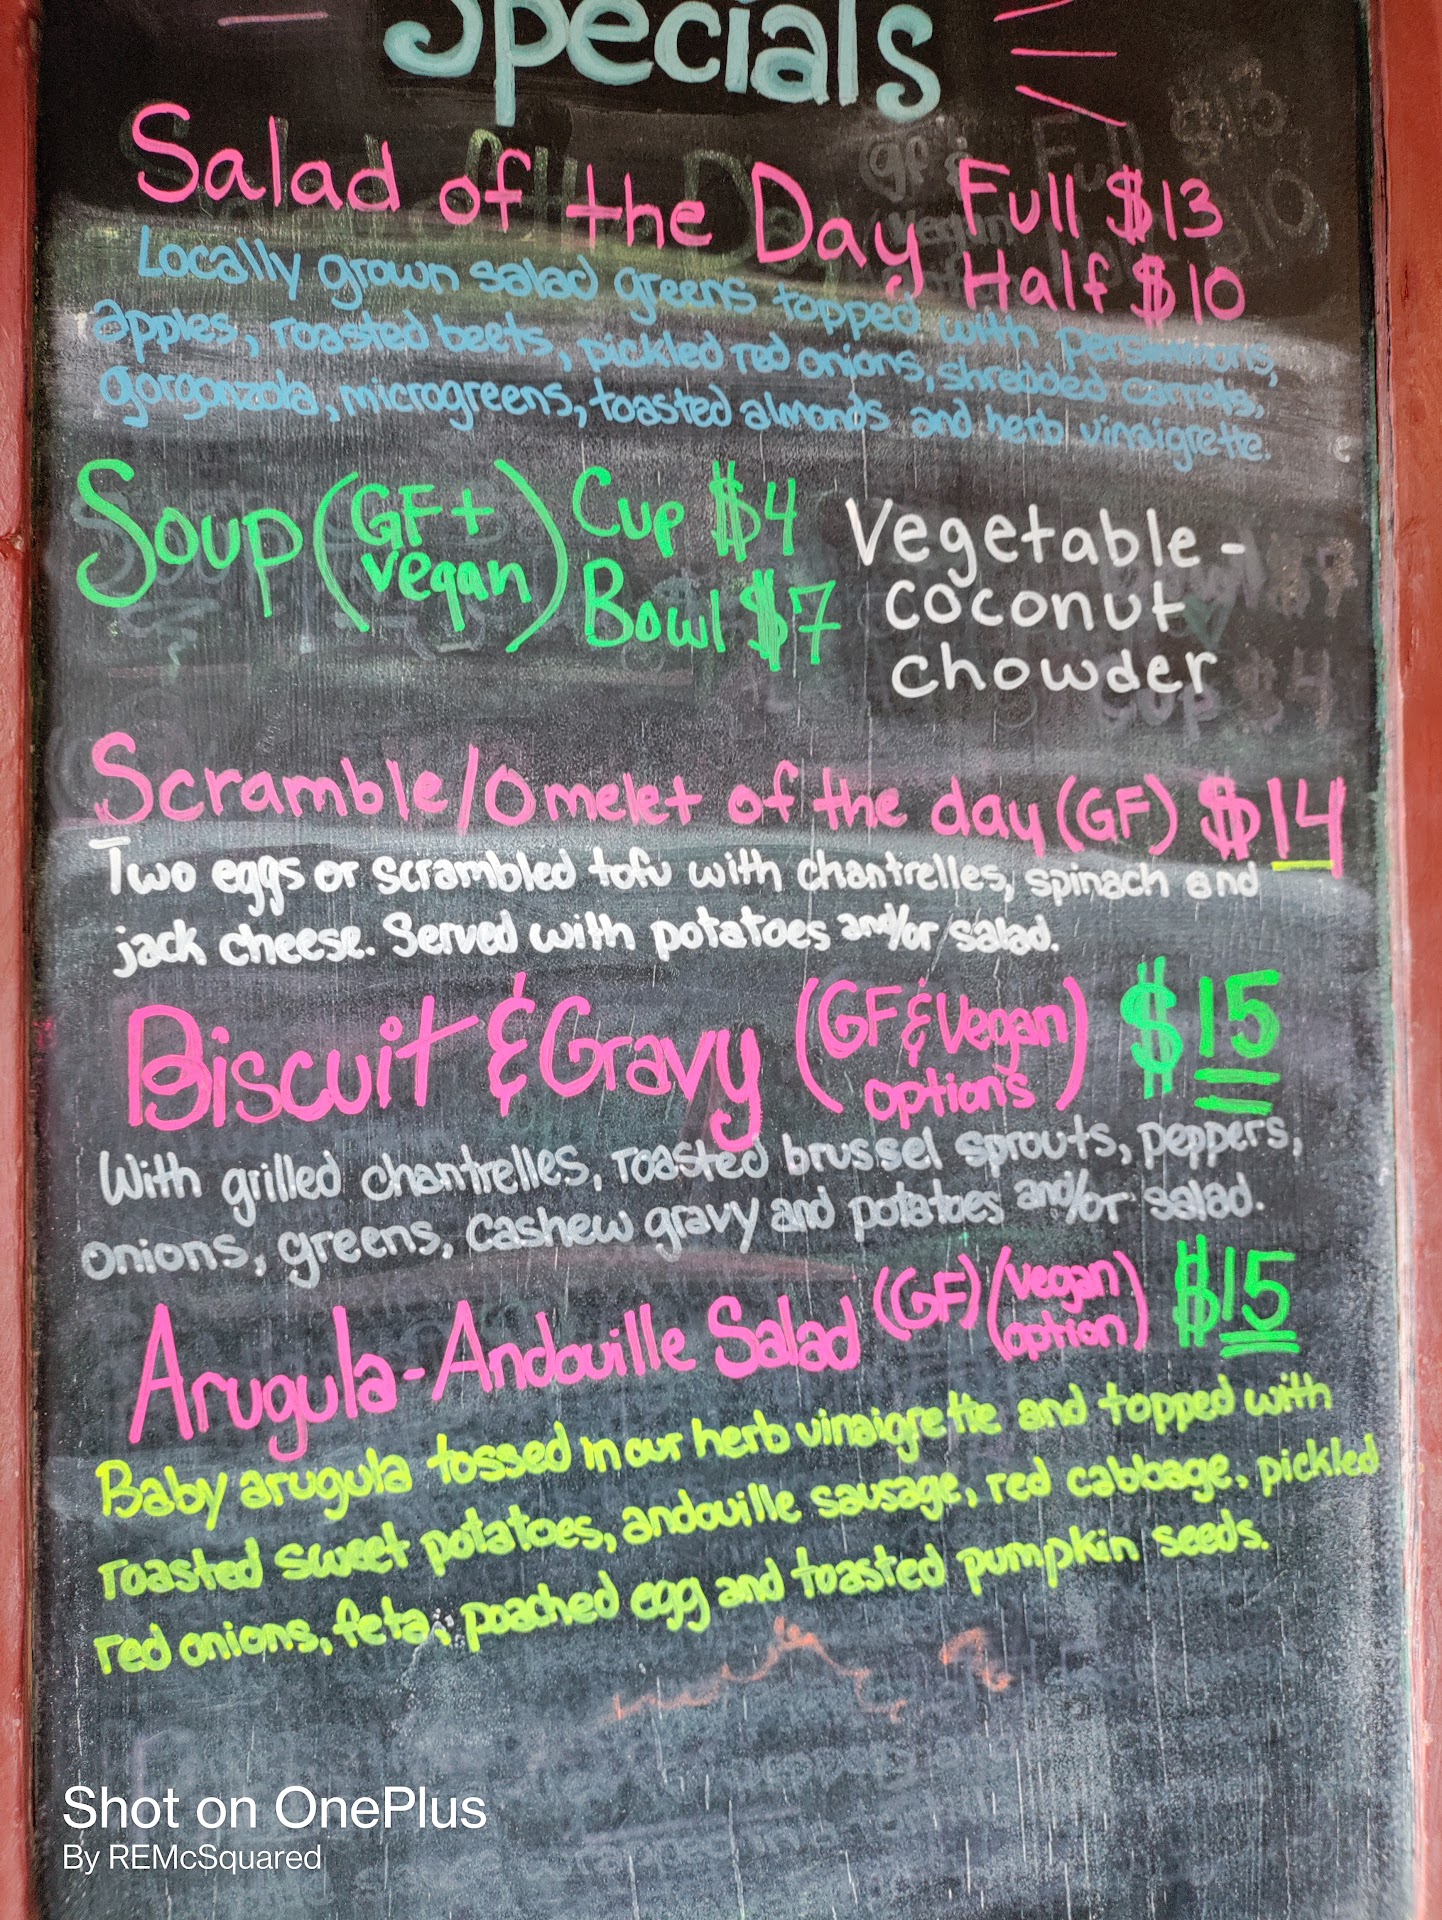 Specials
Salad of the Day Full $13
Half $10
Locally grown salad greens topped with persimmons,
apples, roasted beets, pickled red onions, shredded carrots,
gorgonzola, microgreens, toasted almonds and herb vinaigrette.
Soup (GF + vegan) Cup $4
Bowl $7
Vegetable-
coconut
chowder
Scramble/Omelet of the day (GF) $14
Two eggs or scrambled tofu with chantrelles, spinach and
jack cheese. Served with potatoes and/or salad.
Biscuit & Gravy (GF & Vegan options) $15
With grilled chantrelles, roasted brussel sprouts, peppers,
onions, greens, cashew gravy and potatoes and/or salad.
Arugula-Andouille Salad (GF) (vegan option) $15
Baby arugula tossed in our herb vinaigrette and topped with
roasted sweet potatoes, andouille sausage, red cabbage, pickled
red onions, feta, poached egg and toasted pumpkin seeds.
Shot on OnePlus
By REMcSquared